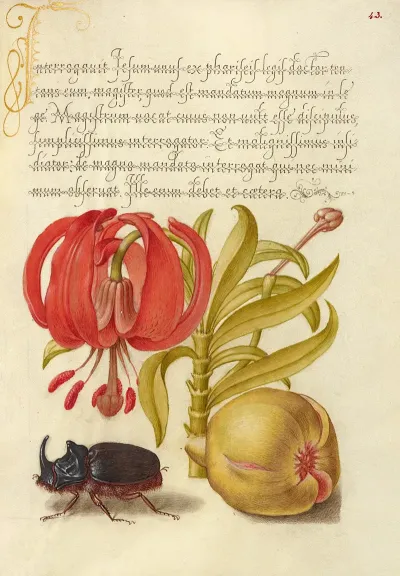 43.
Interrogauit Iesum unus ex phariseis legis doctor ten-
tans eum, magister, quod est mandatum magnum in le-
ge. Magistrum vocat cuius non uult esse discipulus.
Simplicissimus interrogator: Et malignissimus insi-
diator: de magno mandato interrogat qui nec mini-
mum obseruat. Ille enim debet et cetera.